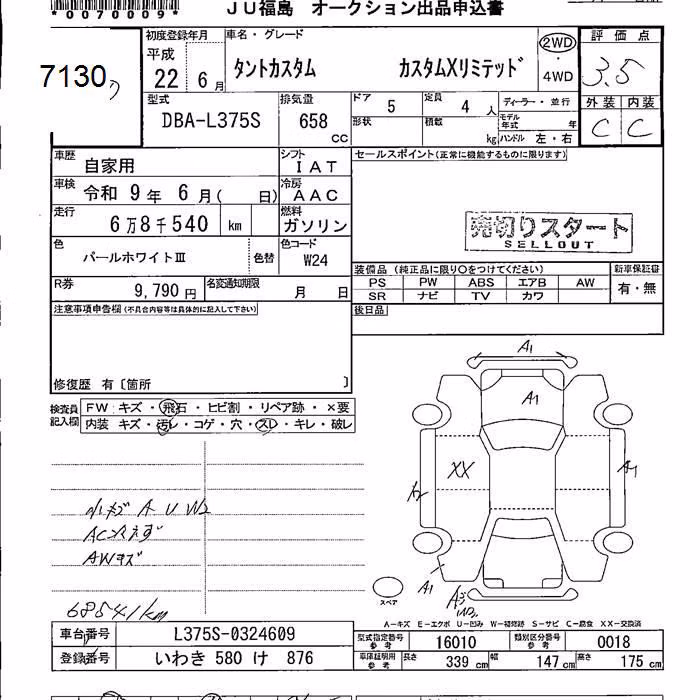 *0070009*
JU福島 オークション出品申込書
7130
初度登録年月 車名・グレード
平成 22 6月
タントカスタム カスタムXリミテッド
2WD ・ 4WD
評価点
3.5
外装 内装
C C
型式 DBA-L375S
排気量 658 CC
ドア 5 定員 4 人
形状 積載 kg
ディーラー・並行
モデル年式 年
ハンドル 左・右
車歴 自家用
シフト IAT
車検 令和 9年 6月( 日)
冷房 AAC
走行 6万8千540 km
燃料 ガソリン
色 パールホワイトⅢ 色替
色コード W24
R券 9,790円
名変通知期限 月 日
セールスポイント(正常に機能するものに限ります)
売切りスタート
SELLOUT
装備品(純正品に限り○をつけてください) 新車保証書
PS PW ABS エアB AW 有・無
SR ナビ TV カワ
後日品
注意事項申告欄(不具合内容等は具体的に記入して下さい)
修復歴 有〔箇所 〕
検査員記入欄
FW キズ・飛石・ヒビ割・リペア跡・×要
内装 キズ・汚レ・コゲ・穴・スレ・キレ・破レ
小キズ A U W2
AC冷えず
AWキズ
68541km
A1
A1
XX
A2
A1
A1
W2
スペア
A―キズ E―エクボ U―凹み W―補修跡 S―サビ C―腐食 XX―交換済
車台番号 L375S-0324609
登録番号 いわき 580 け 876
型式指定番号 参考 16010 類別区分番号 参考 0018
車庫証明用 参考 長さ 339 cm 幅 147 cm 高さ 175 cm